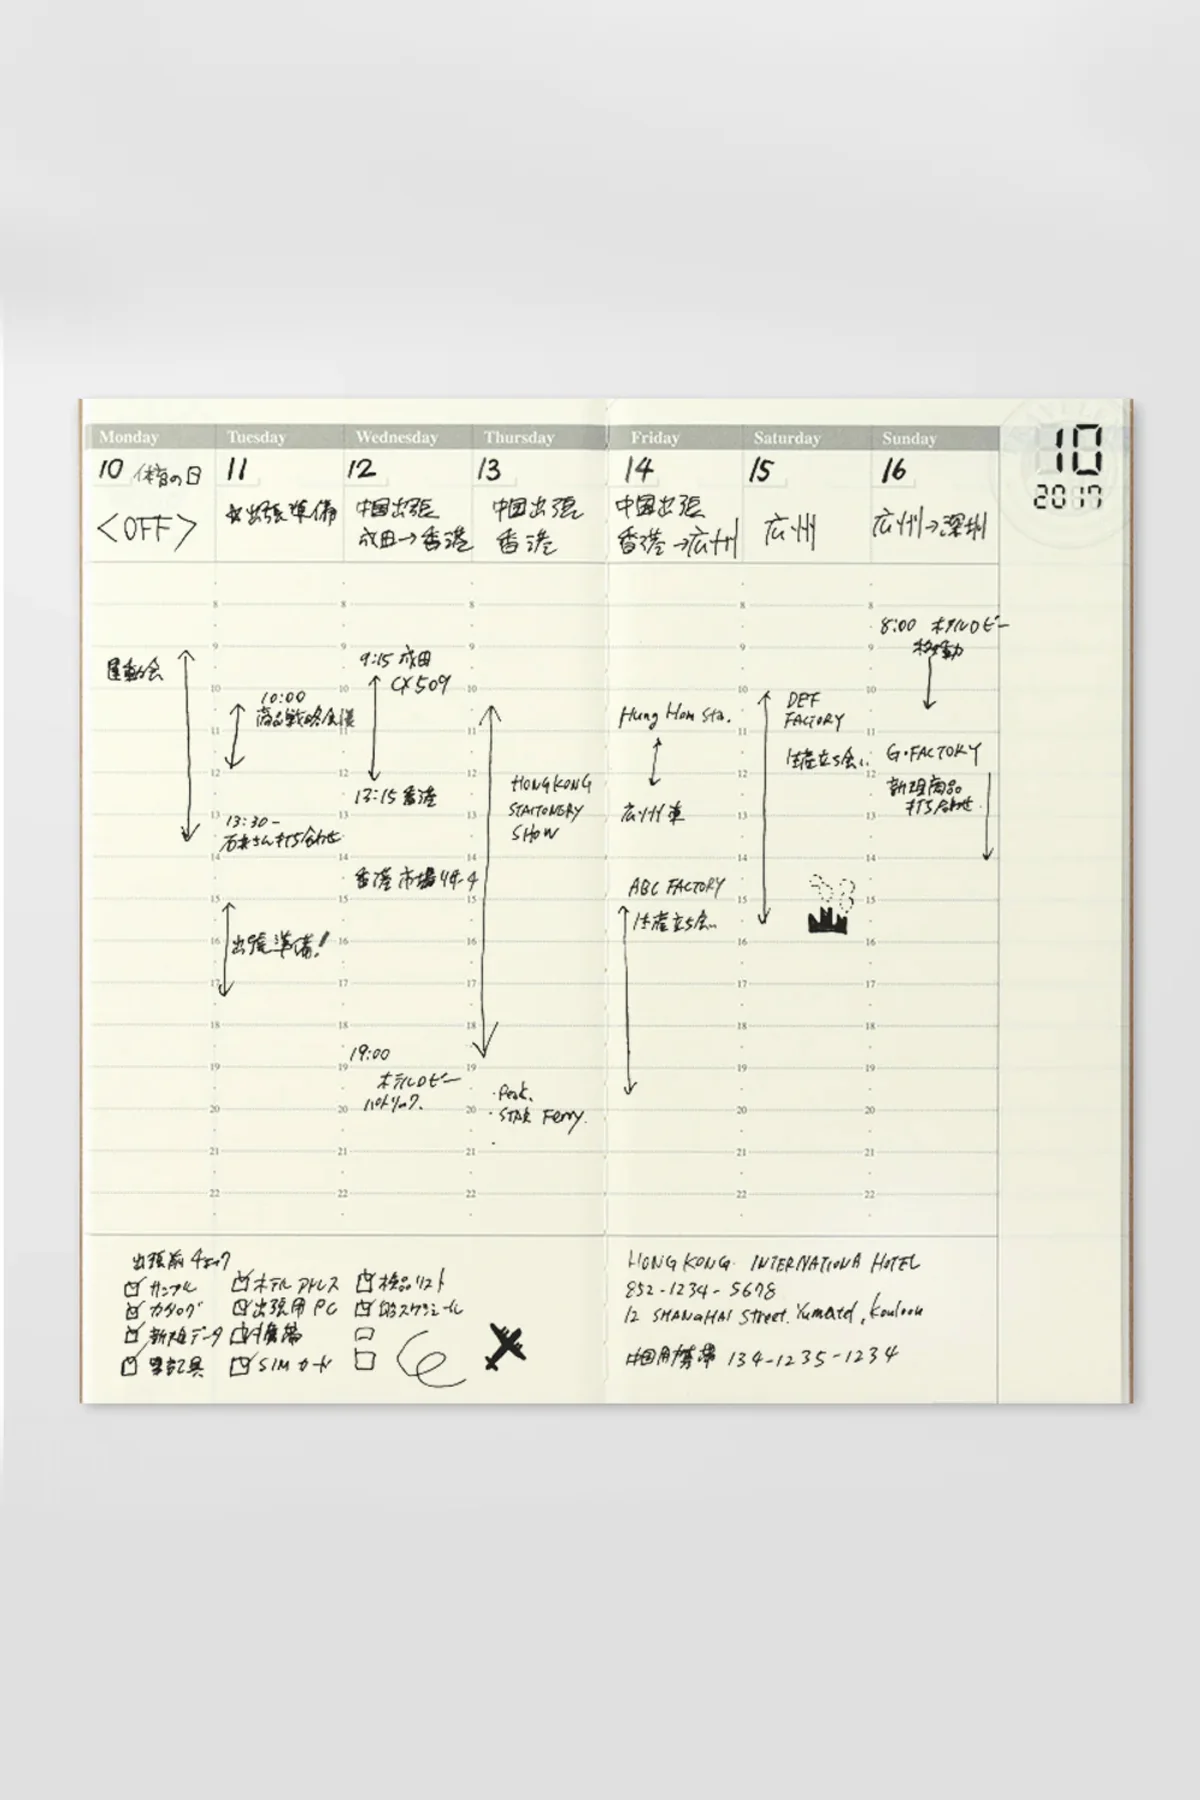 Monday
Tuesday
Wednesday
Thursday
Friday
Saturday
Sunday
10
2017
10 体育の日
<OFF>
11
☆出張準備
12
中国出張
成田→香港
13
中国出張
香港
14
中国出張
香港→広州
15
広州
16
広州→深圳
8
9
10
11
12
13
14
15
16
17
18
19
20
21
22
運動会
10:00
商品戦略会議
13:30-
石井さん打ち合わせ
出張準備!
9:15 成田
CX509
13:15 香港
香港市場リサーチ
19:00
ホテルロビー
パトリック.
HONGKONG
STATIONERY
SHOW
・Peak.
・STAR Ferry.
Hung Hom Sta.
広州東
ABC FACTORY
生産立ち会い
DEF
FACTORY
生産立ち会い
8:00 ホテルロビー
移動
G・FACTORY
新規商品
打ち合わせ
出張前チェック
サンプル
カタログ
新規データ
筆記具
ホテルアドレス
出張用PC
携帯
SIMカード
検品リスト
スケジュール
HONG KONG INTERNATIONA HOTEL
852-1234-5678
12 SHANGHAI Street. Yumatei, Kouloon
中国用携帯 134-1235-1234